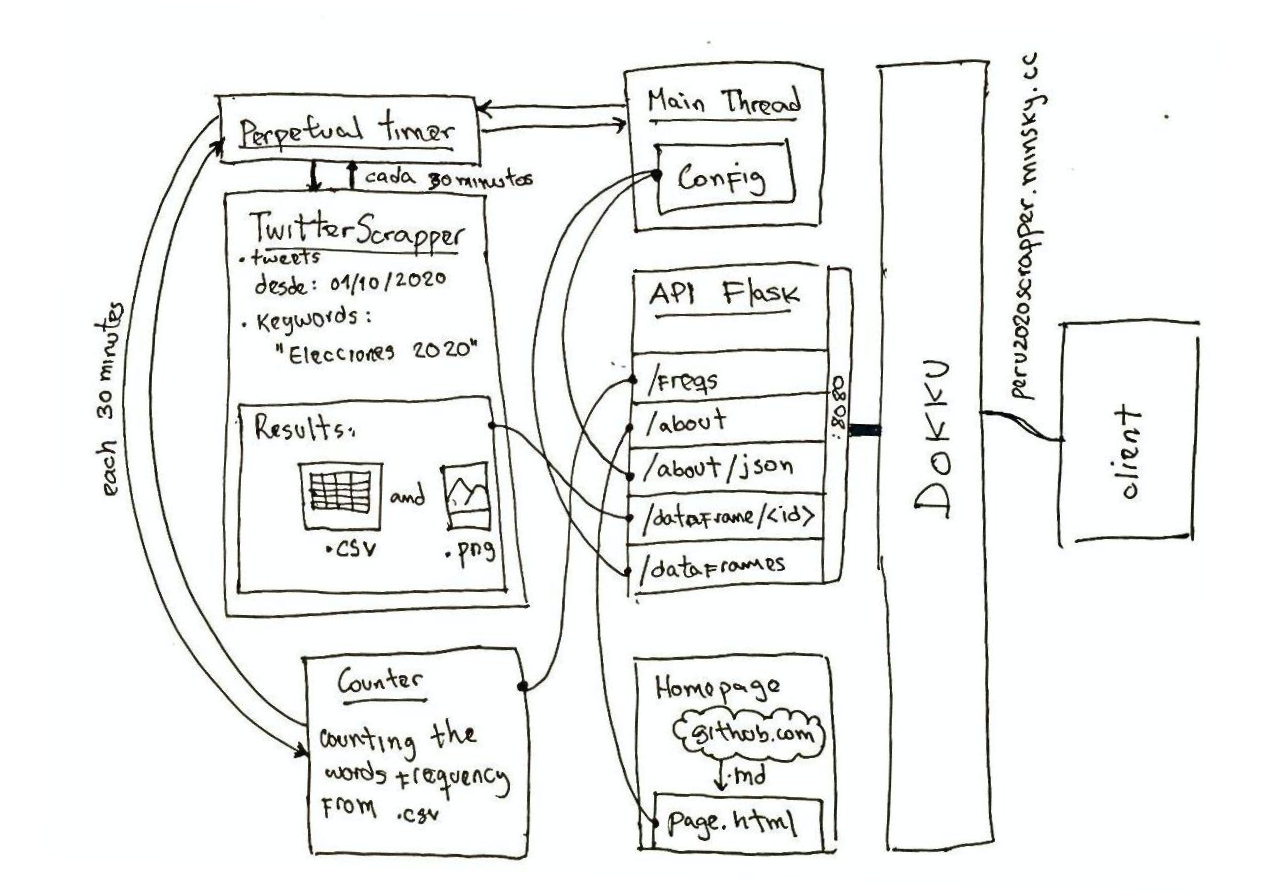 Perpetual timer
cada 30 minutos
each 30 minutes
TwitterScrapper
• tweets
desde: 01/10/2020
• Keywords:
"Elecciones 2020"
Results:
and
.csv
.png
Counter
counting the
words frequency
from .csv
Main Thread
Config
API Flask
/freqs
/about
/about/json
/dataframe/<id>
/dataframes
:8080
Homepage
github.com
.md
page.html
DOKKU
peru2020scrapper.minsky.cc
client